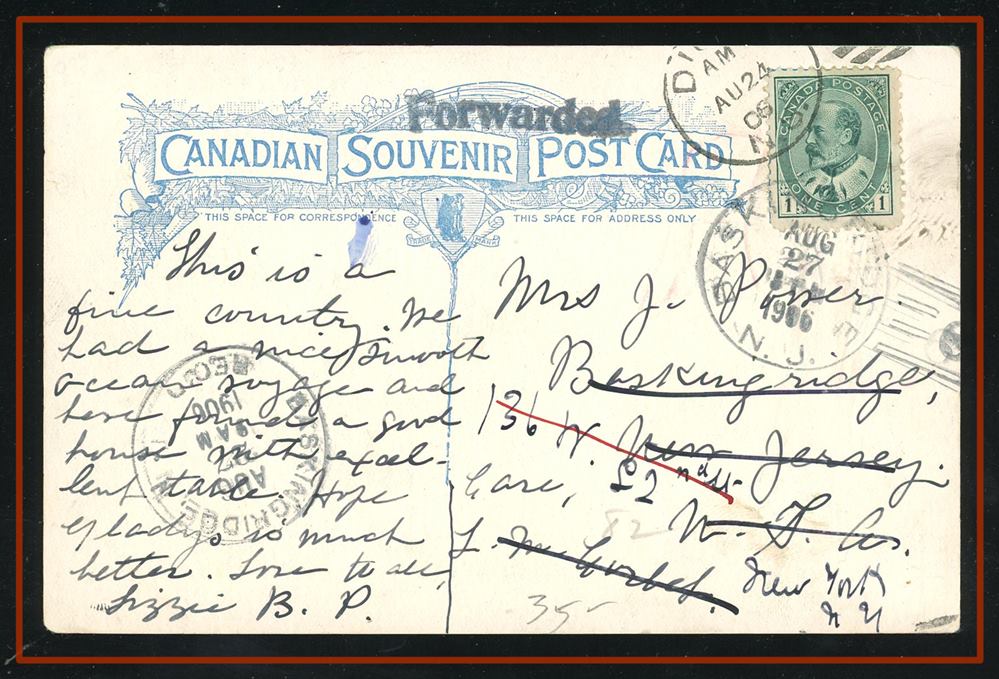 Forwarded.
CANADIAN SOUVENIR POST CARD
THIS SPACE FOR CORRESPONDENCE
THIS SPACE FOR ADDRESS ONLY
TRADE MARK
AM
AU 24
06
N.S
CANADA POSTAGE
1 ONE CENT 1
BASKINGRIDGE
AUG
27
1906
N.J.
This is a
fine country. We
had a nice smooth
ocean voyage and
have found a good
house with excel-
lent table. Hope
Gladys is much
better. Love to all,
Lizzie B. P.
BASKINGRIDGE
REC'D
1906
9 AM
27
AUG
Mrs J. Power.
Baskingridge,
New Jersey.
136 W. 82nd st
Care,
82
New York
N Y
35-